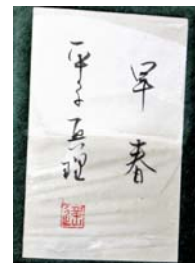 早春
平子真理